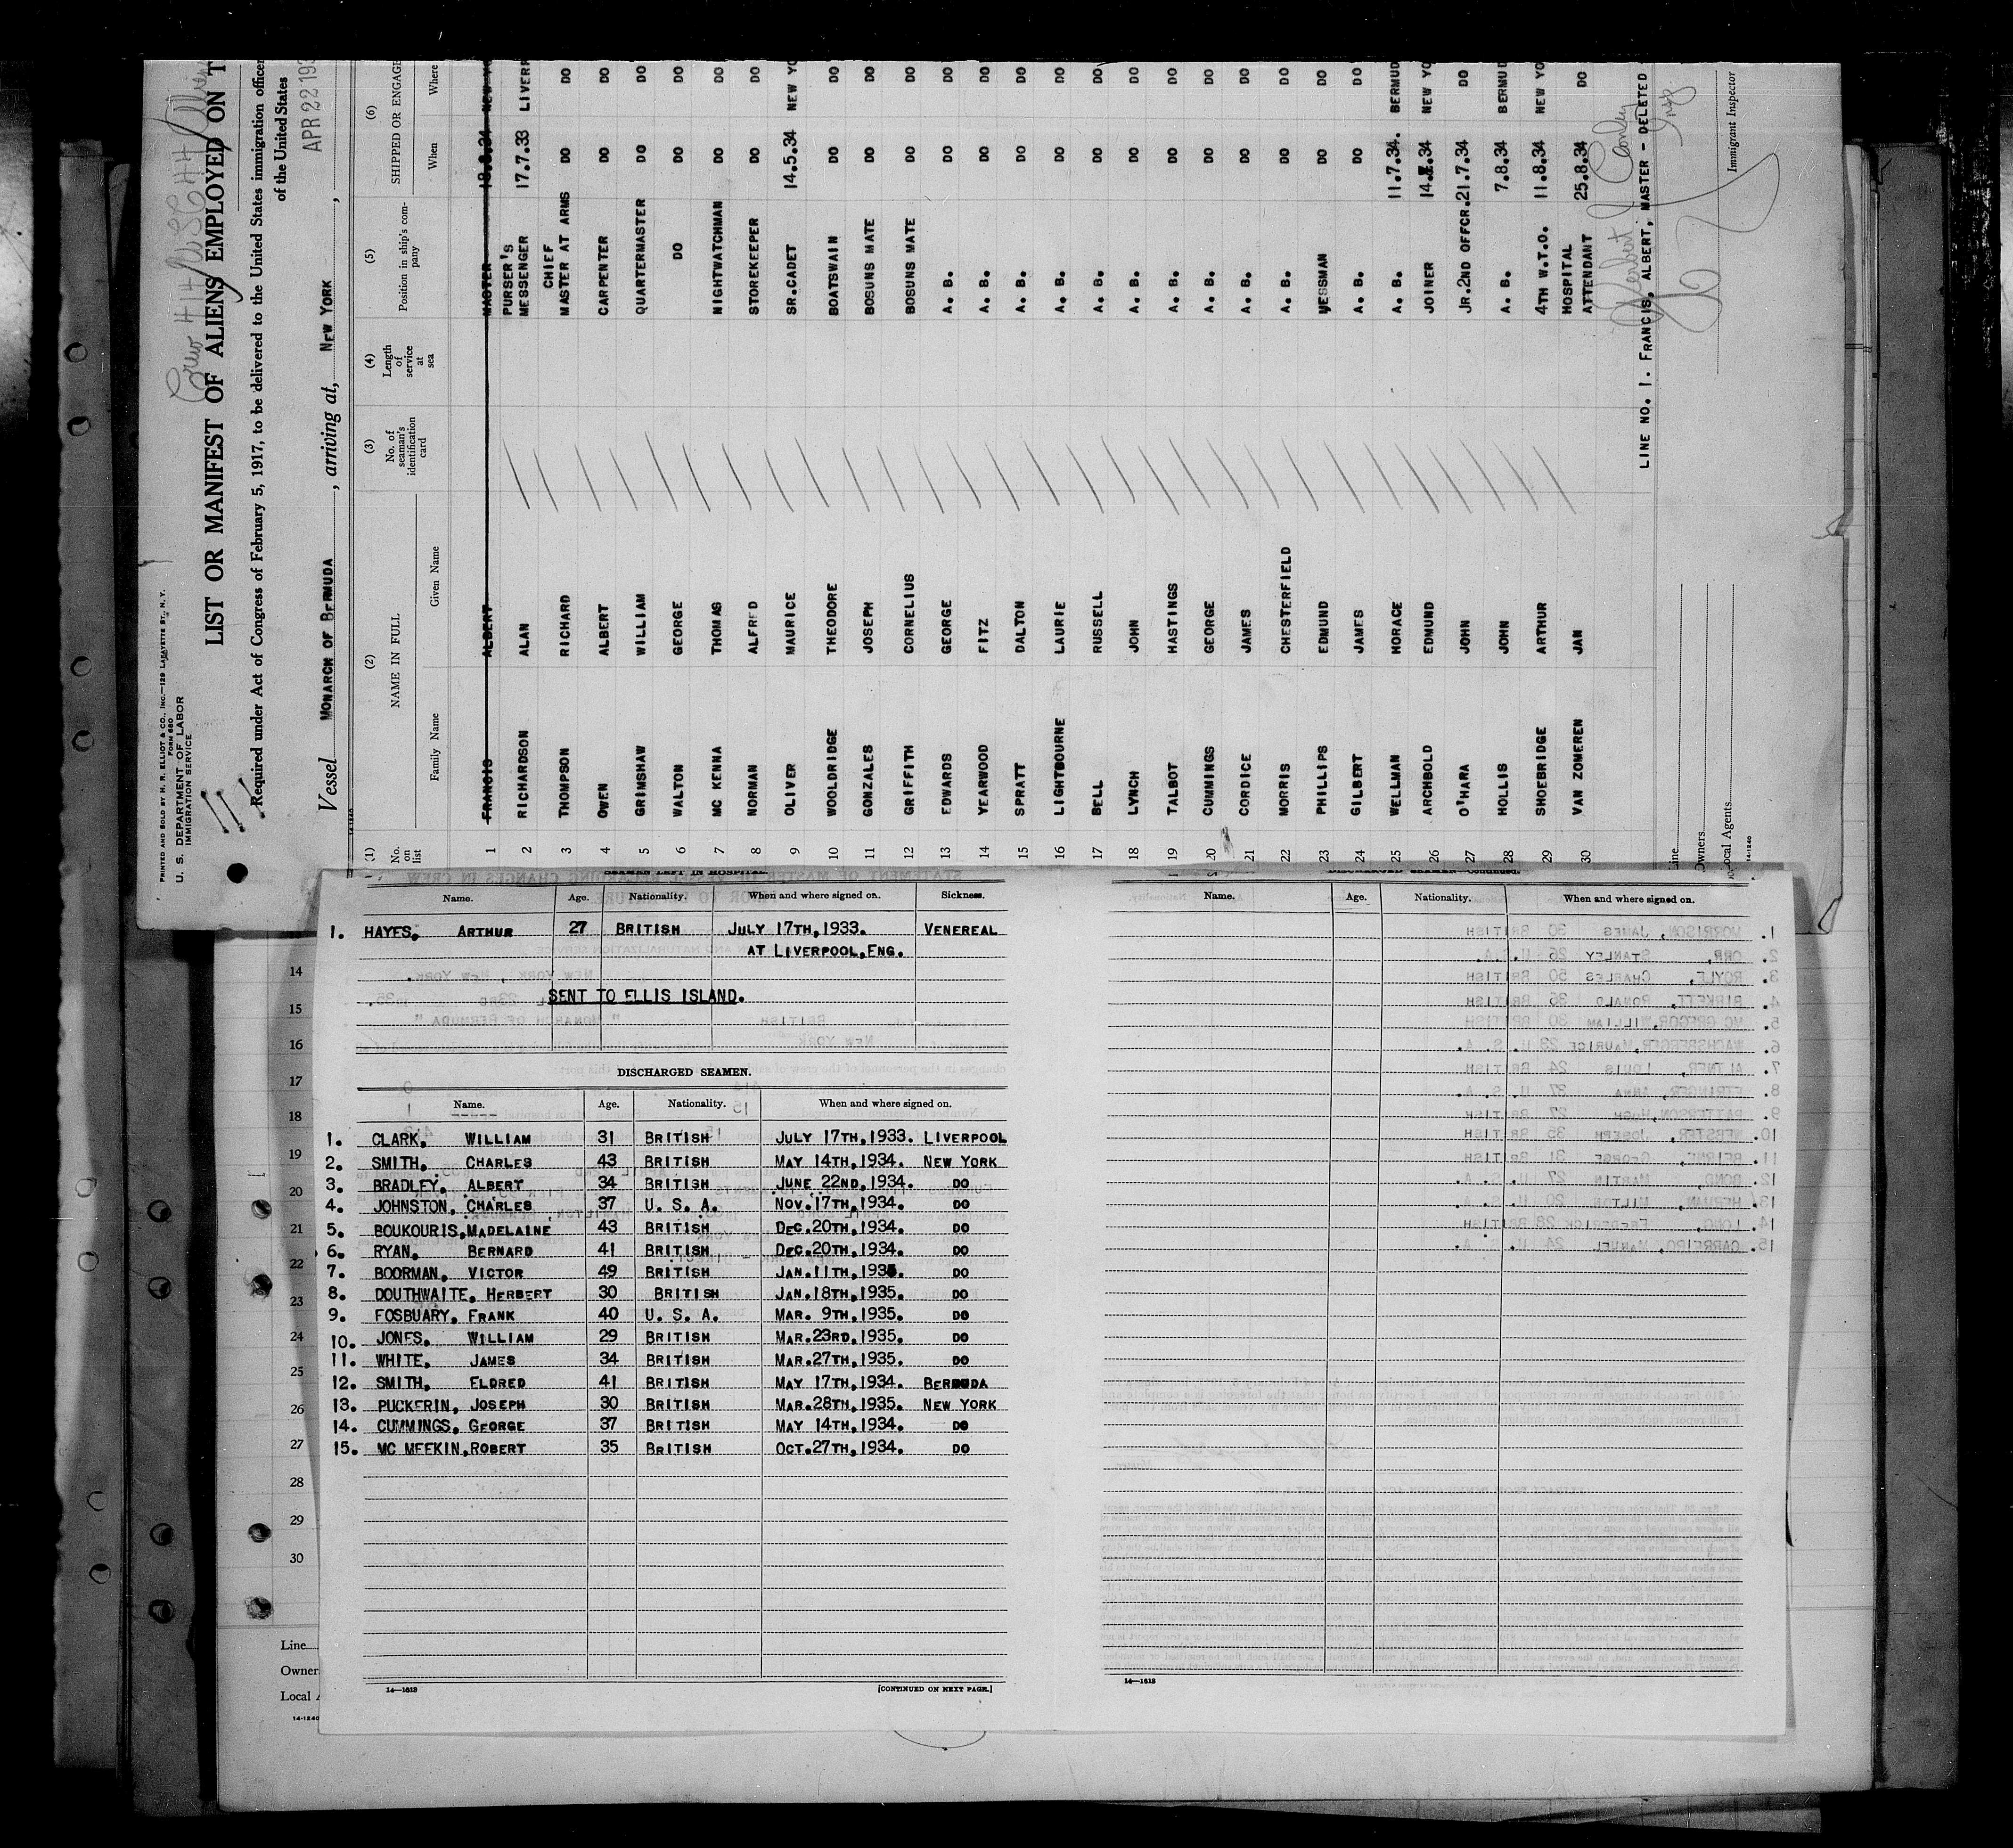 PRINTED AND SOLD BY H. R. ELLIOT & CO., INC.—129 LAFAYETTE ST., N. Y.
FORM 680
U. S. DEPARTMENT OF LABOR
IMMIGRATION SERVICE
Crew 414
LIST OR MANIFEST OF ALIENS EMPLOYED ON T
Required under Act of Congress of February 5, 1917, to be delivered to the United States immigration officer
of the United States
APR 22 193
Vessel MONARCH OF BERMUDA, arriving at, NEW YORK,
14-1240
(1) (2) (3) (4) (5) (6)
No. on list NAME IN FULL No. of seaman's identification card Length of service at sea Position in ship's company SHIPPED OR ENGAGE
Family Name Given Name When Where
1 FRANCIS ALBERT MASTER 18.8.34 NEW YO
2 RICHARDSON ALAN PURSER'S MESSENGER 17.7.33 LIVERP
3 THOMPSON RICHARD CHIEF MASTER AT ARMS DO DO
4 OWEN ALBERT CARPENTER DO DO
5 GRIMSHAW WILLIAM QUARTERMASTER DO DO
6 WALTON GEORGE DO DO DO
7 MC KENNA THOMAS NIGHTWATCHMAN DO DO
8 NORMAN ALFRED STOREKEEPER DO DO
9 OLIVER MAURICE SR.CADET 14.5.34 NEW YO
10 WOOLDRIDGE THEODORE BOATSWAIN DO DO
11 GONZALES JOSEPH BOSUNS MATE DO DO
12 GRIFFITH CORNELIUS BOSUNS MATE DO DO
13 EDWARDS GEORGE A. B. DO DO
14 YEARWOOD FITZ A. B. DO DO
15 SPRATT DALTON A. B. DO DO
16 LIGHTBOURNE LAURIE A. B. DO DO
17 BELL RUSSELL A. B. DO DO
18 LYNCH JOHN A. B. DO DO
19 TALBOT HASTINGS A. B. DO DO
20 CUMMINGS GEORGE A. B. DO DO
21 CORDICE JAMES A. B. DO DO
22 MORRIS CHESTERFIELD A. B. DO DO
23 PHILLIPS EDMUND MESSMAN DO DO
24 GILBERT JAMES A. B. DO DO
25 WELLMAN HORACE A. B. 11.7.34. BERMUD
26 ARCHBOLD EDMUND JOINER NEW YO
27 O'HARA JOHN JR.2ND OFFCR. 21.7.34 DO
28 HOLLIS JOHN A. B. 7.8.34 BERMUD
29 SHOEBRIDGE ARTHUR 4TH W.T.O. 11.8.34 NEW YO
30 VAN ZOMEREN JAN HOSPITAL ATTENDANT 25.8.34 DO
LINE NO. 1. FRANCIS, ALBERT, MASTER - DELETED
Herbert J Conley
Insp
Immigrant Inspector
Line
Owners
Local Agents
14-1240
SEAMAN LEFT IN HOSPITAL.
Name. Age. Nationality. When and where signed on. Sickness.
1. HAYES, ARTHUR 27 BRITISH JULY 17TH, 1933. VENEREAL
AT LIVERPOOL, ENG.
SENT TO ELLIS ISLAND.
DISCHARGED SEAMEN.
Name. Age. Nationality. When and where signed on.
1. CLARK, WILLIAM 31 BRITISH JULY 17TH, 1933. LIVERPOOL
2. SMITH, CHARLES 43 BRITISH MAY 14TH, 1934. NEW YORK
3. BRADLEY, ALBERT 34 BRITISH JUNE 22ND, 1934. DO
4. JOHNSTON, CHARLES 37 U. S. A. NOV. 17TH, 1934. DO
5. BOUKOURIS, MADELAINE 43 BRITISH DEC. 20TH, 1934. DO
6. RYAN, BERNARD 41 BRITISH DEC. 20TH, 1934. DO
7. BOORMAN, VICTOR 49 BRITISH JAN. 11TH, 1935. DO
8. DOUTHWAITE, HERBERT 30 BRITISH JAN. 18TH, 1935. DO
9. FOSBUARY, FRANK 40 U. S. A. MAR. 9TH, 1935. DO
10. JONES, WILLIAM 29 BRITISH MAR. 23RD, 1935. DO
11. WHITE, JAMES 34 BRITISH MAR. 27TH, 1935. DO
12. SMITH, ELDRED 41 BRITISH MAY 17TH, 1934. BERMUDA
13. PUCKERIN, JOSEPH 30 BRITISH MAR. 28TH, 1935. NEW YORK
14. CUMMINGS, GEORGE 37 BRITISH MAY 14TH, 1934. DO
15. MC MEEKIN, ROBERT 35 BRITISH OCT. 27TH, 1934. DO
14—1613
[CONTINUED ON NEXT PAGE.]
DISCHARGED SEAMEN—Continued.
Name. Age. Nationality. When and where signed on.
14—1613
14
15
16
17
18
19
20
21
22
23
24
25
26
27
28
29
30
Line
Owner
Local A
14-1240